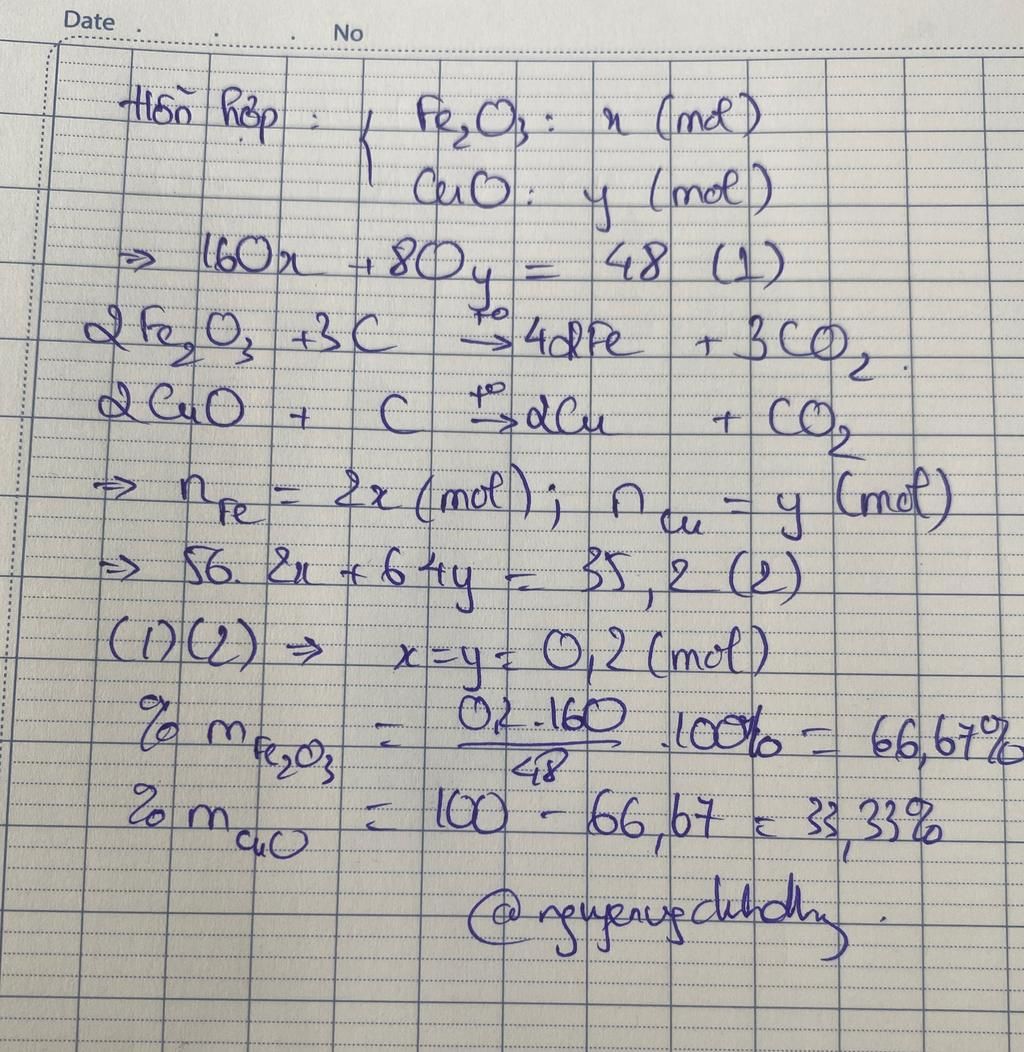 Date . . . No
Hỗn hợp : { Fe₂O₃ : x (mol)
CuO : y (mol)
⇒ 160x + 80y = 48 (1)
2Fe₂O₃ + 3C →(t°) 4Fe + 3CO₂.
2CuO + C →(t°) 2Cu + CO₂
⇒ n_Fe = 2x (mol) ; n_Cu = y (mol)
⇒ 56. 2x + 64y = 35,2 (2)
(1)(2) ⇒ x = y = 0,2 (mol)
% m_Fe₂O₃ = 0,2.160/48 .100% = 66,67%
% m_CuO = 100 - 66,67 = 33,33%